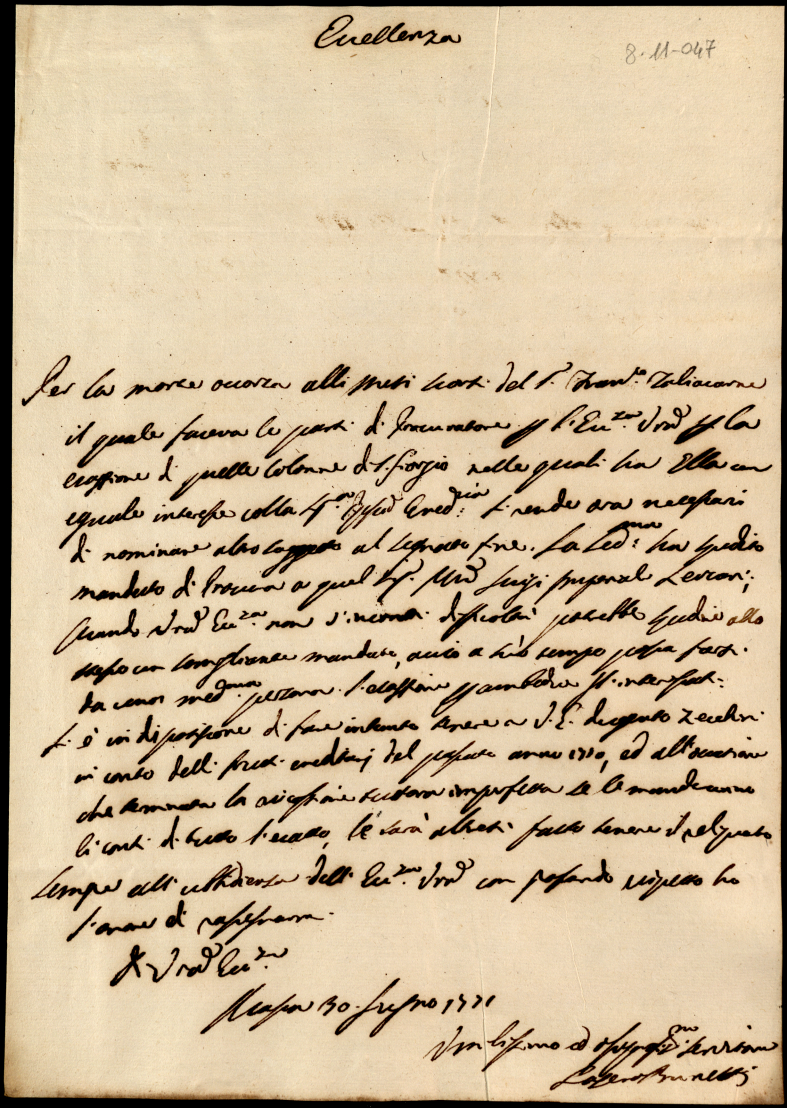 Eccellenza
8-11-047
Per la morte occorsa alli mesi scorsi del S.r Fran.co Taliacarne
il quale faceva le parti di Procuratore p l'Ecc.za Vrã p la
esazione di quelle Colonne di S. Giorgio nelle quali ha Ella un
eguale interesse colla Ered.ria si rende ora necessario
di nominare altro soggetto al segnato fine. La ha spedito
mandato di Procura a quel Sig.r Luigi Imperial Lercari;
Quando Vrã Ecc.za non v'incontri difficoltà potrebbe spedire allo
stesso un somigliante mandato, acciò a suo tempo possa farsi
da una med.ma persona l'esazione p ambedue gl'interessati.
Si è in disposizione di fare intanto tenere a V. E. dugento Zecchini
in conto delli frutti ereditarj del passato anno 1770, ed all'occasione
che terminata la tuttora imperfetta se le manderanno
li conti di tutto l'esatto, le sarà altresì fatto tenere il reliquato
Sempre all'ubbidienza dell'Ecc.za Vrã con profondo rispetto ho
l'onore di rassegnarmi.
Di Vrã Ecc.za
Massa 30 Giugno 1771
Umilissimo ed osseq.mo servitore
Brunetti